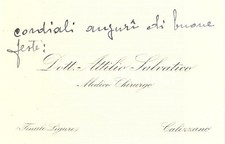 cordiali auguri di buone
feste:
Dott. Attilio Salvatico
Medico Chirurgo
Finale Ligure
Calizzano